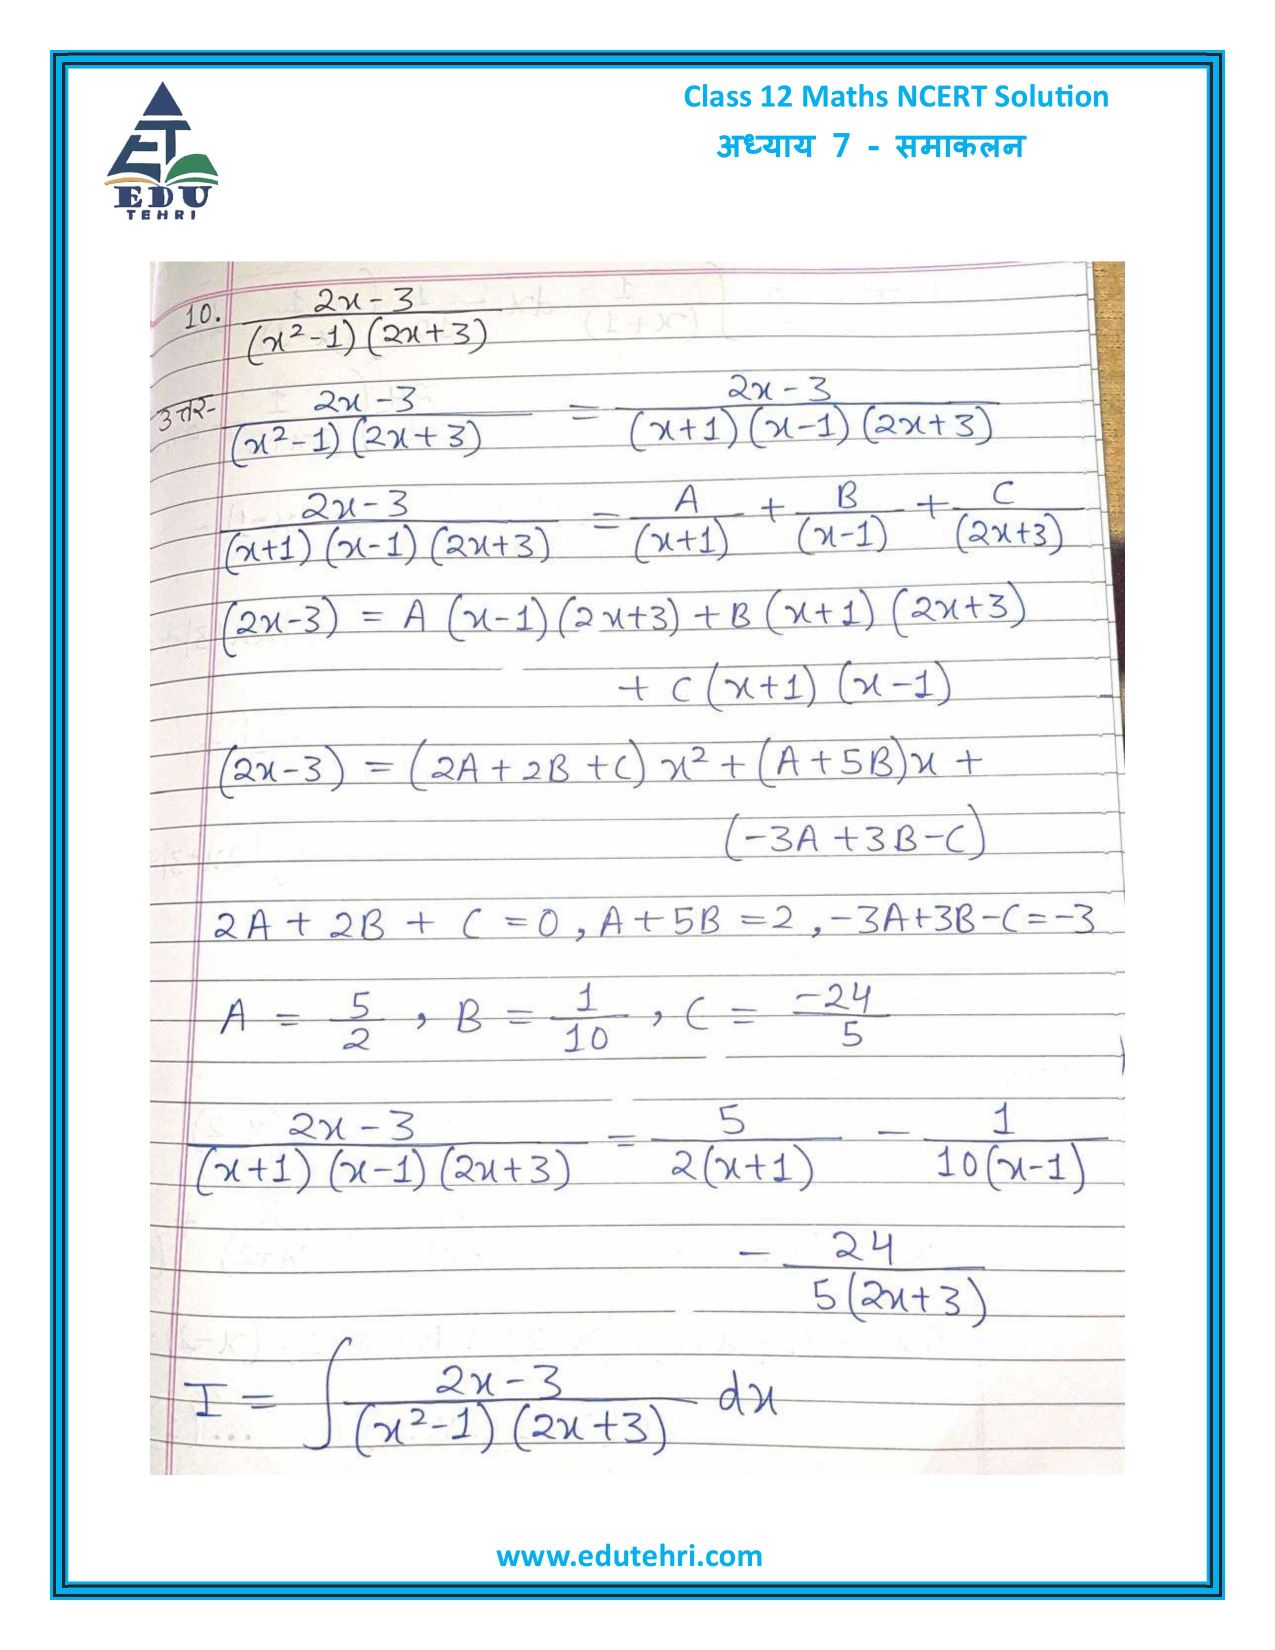 Class 12 Maths NCERT Solution
अध्याय 7 - समाकलन
EDU
TEHRI
10. (2x-3)/((x²-1)(2x+3))
उत्तर- (2x-3)/((x²-1)(2x+3)) = (2x-3)/((x+1)(x-1)(2x+3))
(2x-3)/((x+1)(x-1)(2x+3)) = A/(x+1) + B/(x-1) + C/(2x+3)
(2x-3) = A(x-1)(2x+3) + B(x+1)(2x+3)
+ C(x+1)(x-1)
(2x-3) = (2A+2B+C)x² + (A+5B)x +
(-3A+3B-C)
2A + 2B + C = 0, A+5B = 2, -3A+3B-C = -3
A = 5/2, B = 1/10, C = -24/5
(2x-3)/((x+1)(x-1)(2x+3)) = 5/(2(x+1)) - 1/(10(x-1))
- 24/(5(2x+3))
I = ∫ (2x-3)/((x²-1)(2x+3)) dx
www.edutehri.com